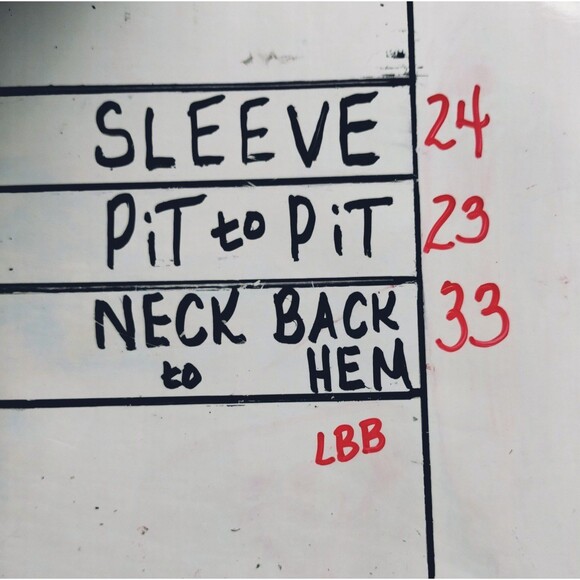 SLEEVE 24
PiT to PiT 23
NECK BACK 33
to HEM
LBB